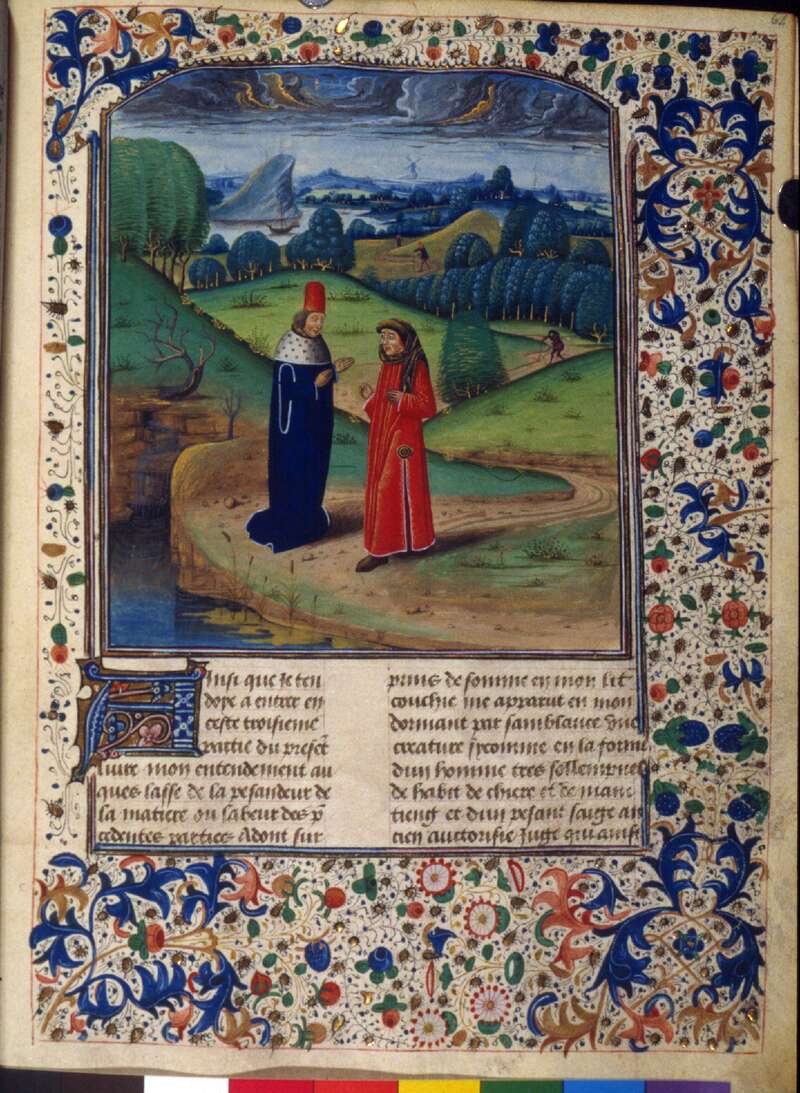 Ainsi que Je ten
doye a entrer en
ceste troisieme
partie du presēt
livre mon entendement au
ques lasse de la pesandeur de
la matiere ou labeur des p̄
cedentes parties Adont sur
prins de somme en mon lit
couchie me apparut en mon
dormant par samblance une
creature sycomme en la forme
dun homme tres sollempnel
de habit de chiere et de main
tieng et dun pesant saige an
cien auctorisie Juge qui ainsi